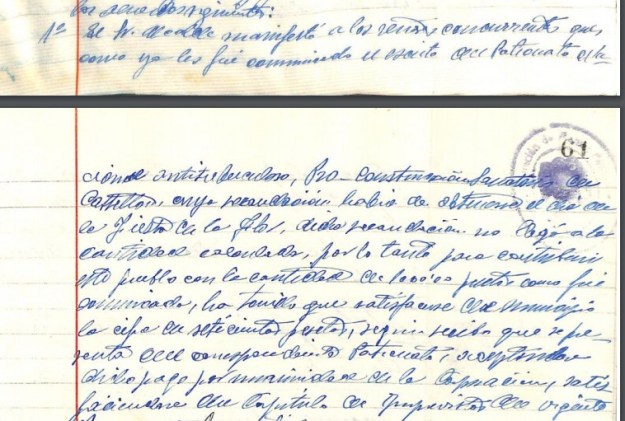 1º El Sr. Alcalde manifestó a los señores concurrentes que,
como ya les fué comunicado el escrito del Patronato
61
antituberculoso, Pro-Construcción Sanatorio de
Castellón, cuya recaudación había de obtenerse el día de
la Fiesta de la Flor, dicha recaudación no llegó a la
cantidad calculada, por lo tanto para contribuir
este pueblo con la cantidad de pesetas como fué
comunicado, ha tenido que satisfacerse del municipio
la cifra de setecientas pesetas, según recibo que se pre-
senta del correspondiente Patronato, aceptando
dicho pago por unanimidad de la Corporación, satis-
faciendose del Capítulo de Imprevistos del vigente